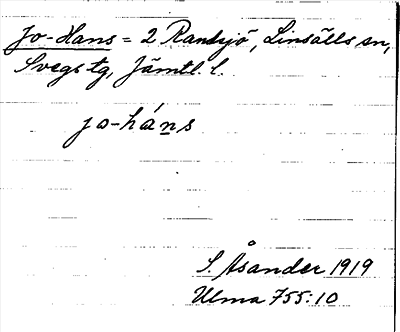 Jo-Hans = 2 Randsjö, Linsälls sn,
Svegs tg, Jämtl. l.
jo-háns
S. Åsander 1919
Ulma 755:10